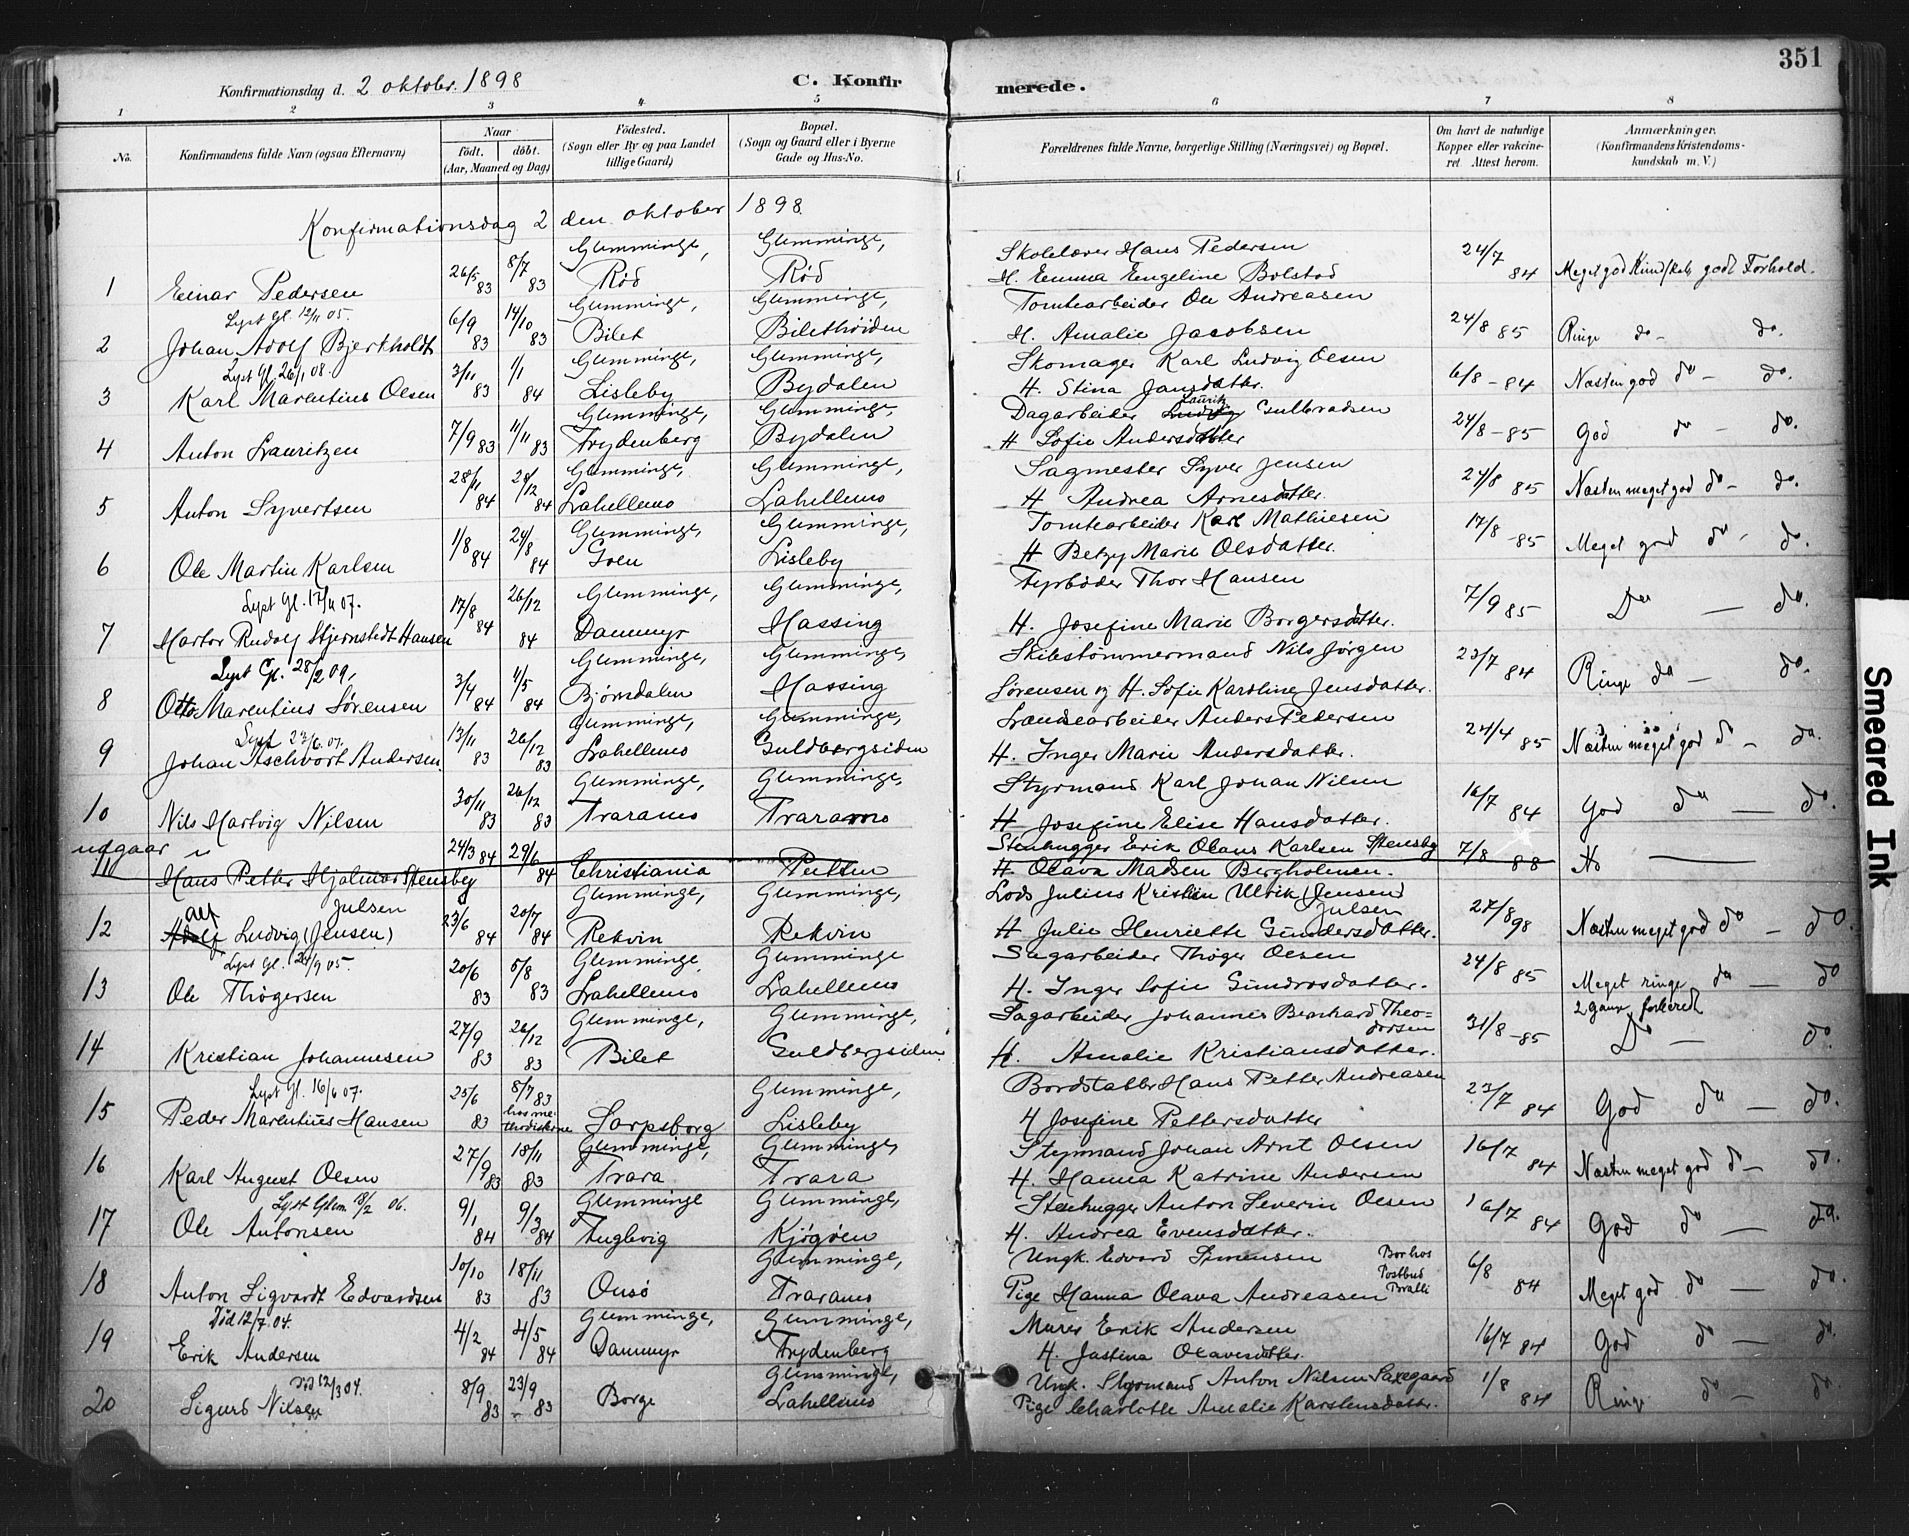 351
Konfirmationsdag d. 2 oktober 1898
C. Konfirmerede.
1 2 3 4 5 6 7 8
No. Konfirmandens fulde Navn (ogsaa Efternavn) Naar født. døbt. (Aar, Maaned og Dag) Fødested. (Sogn eller By og paa Landet tillige Gaard) Bopæl. (Sogn og Gaard eller i Byerne Gade og Hus-No. Forældrenes fulde Navne, borgerlige Stilling (Næringsvei) og Bopæl. Om havt de naturlige Kopper eller vakcineret. Attest herom. Anmærkninger. (Konfirmandens Kristendomskundskab m. V.)
Konfirmationsdag 2 den oktober 1898.
1 Einar Pedersen 26/5 83 8/7 83 Glemminge, Rød Glemminge, Rød Skolelærer Hans Pedersen H. Emma Engeline Bolstad 24/7 84 Meget god Kundskab godt Forhold.
Lyst Gl. 12/11 05.
2 Johan Adolf Bjerkholdt 6/9 83 14/10 83 Glemminge, Bilet Glemminge, Bilethøiden Tomtearbeider Ole Andreasen H. Amalie Jacobsen 24/8 85 Ringe do - do.
Lyst Gl. 26/1 08.
3 Karl Marentius Olsen 3/11 83 1/1 84 Glemminge, Lisleby Glemminge, Bydalen Skomager Karl Ludvig Olsen H. Stina Jansdatter. 6/8 - 84 Næsten god do - do.
4 Anton Lauritzen 7/9 83 11/11 83 Glemminge, Frydenberg Glemminge, Bydalen Dagarbeider Lauritz Gulbradsen H Sofie Andersdatter 24/8 - 85 God do - do.
5 Anton Syvertsen 28/11 84 28/12 84 Glemminge, Lahellemo Glemminge, Lahellemo Sagmester Syver Jensen H Andrea Arnesdatter. 24/8 85 Næsten meget god do - do.
6 Ole Martin Karlsen 1/8 84 24/8 84 Glemminge, Goen Glemminge, Lisleby Tomtearbeider Karl Mathiesen H Betzy Marie Olsdatter. 17/8 - 85 Meget god do - do.
Lyst Gl. 17/11 07.
7 Martor Rudolf Stjernstedt Hansen 17/8 84 26/12 84 Glemminge, Dammyr Glemminge, Hassing Fyrbøder Thor Hansen H. Josefine Marie Borgersdatter. 7/9 85 Do - do.
Lyst Gl. 28/2 09,
8 Otto Marentius Sørensen 3/4 84 11/5 84 Glemminge, Bjørnsdalen Glemminge, Hassing Skibstømmermand Nils Jørgen Sørensen og H. Sofie Karoline Jensdatter. 23/7 84 Ringe do - do.
Lyst 23/6 07.
9 Johan Aschvort Andersen. 13/11 83 26/12 83 Glemminge, Lahellemo Glemminge, Guldbergsiden Landsearbeider Anders Pedersen H. Inger Marie Andersdatter. 24/4 85 Næsten meget god do - do.
10 Nils Hartvig Nilsen 30/11 83 26/12 83 Glemminge, Traramo Glemminge, Traramo Styrmand Karl Johan Nilsen H Josefine Elise Hansdatter. 16/7 84 God do - do.
udgaar
11 Hans Petter Hjalmar Stensby 24/3 84 29/6 84 Christiania Pulsen Stenhugger Erik Olaus Karlsen Stensby H Olava Madsen Bergholmen. 7/8 88 No
12 Adolf Alf Ludvig (Jensen) Julsen 23/6 84 20/7 84 Glemminge, Rekvin Glemminge, Rekvin Lods Julius Kristian Ulrik (Jensen) Julsen H Julie Henriette Gundersdatter. 27/8 98 Næsten meget god do - do
Lyst Gl. 24/9 05.
13 Ole Thøgersen 20/6 83 5/8 83 Glemminge, Lahellemo Glemminge Lahellemo Sagarbeider Thøger Olsen H. Inger Sofie Gundrosdatter. 24/8 85 Meget ringe do - do
2 gange forberedt
14 Kristian Johannesen 27/9 83 26/12 83 Glemminge, Bilet Glemminge, Guldbergsiden Sagarbeider Johannes Bernhard Theodorsen H. Amalie Kristiansdatter. 31/8 - 85 Do - do.
Lyst Gl. 16/6 07.
15 Peder Marentius Hansen 25/6 83 8/7 83 hos methodisterne Sarpsborg Glemminge, Lisleby Bordstabler Hans Petter Andreasen H Josefine Pettersdatter 23/7 84 God do - do.
16 Karl August Olsen 27/9 83 18/11 83 Glemminge, Trara Glemminge, Trara Styrmand Johan Arnt Olsen H. Hanna Katrine Andersen 16/7 84 Næsten meget god do - do.
Lyst Glem. 18/2 06.
17 Ole Antonsen 9/1 84 9/3 84 Glemminge Thuglevig Glemminge, Kjøgøen Stenhugger Anton Severin Olsen H. Andrea Evensdatter. 16/7 84 God do - do.
18 Anton Sigvardt Edvardsen 10/10 83 18/11 83 Onsø Glemminge, Traramo Ungk. Edvard Simensen Pige Hanna Olava Andreasen Bor hos Postbud Bralli 6/8 84 Meget god do - do.
Død 12/7 04.
19 Erik Andersen 4/2 84 4/5 84 Glemminge, Dammyr Glemminge, Frydenberg Murer Erik Andersen H. Jastina Olavesdatter. 16/7 84 God do - do.
død 12/3 04.
20 Sigurd Nilsen 8/9 83 23/9 83 Borge Glemminge, Lahellemo Ungk. Styrmand Anton Nilsen Saxegaard Pige Charlotte Amalie Karstensdatter. 1/8 84 Ringe do - do
Smeared Ink